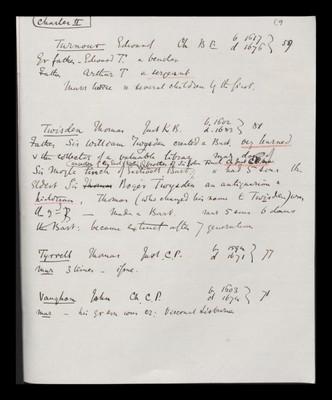 Charles II
Turnour Edward Ch B E b 1617 d 1676 } 59
Gr father - Edward T. a bencher
Father Arthur T a sergeant
Marr twice & several children by the first.
Twisden Thomas Just K.B. b. 1602 d. 1683 } 81
Father, Sir William Twysden created a Bart. very learned
& the collector of a valuable library
Sir Moyle Finch of Eastwell Bart; & had 5 sons the
eldest Sir Roger Twysden an antiquarian &
historian, Thomas (who changed his name to Twisden) was
the 2nd — Made a Bart. marr 5 sons 6 daus
the Bart: became extinct after 7 generations
Tyrrell Thomas Just C.P. b 1594 d 1671 } 77
marr 3 times - issue.
Vaughan John Ch. C.P. b 1603 d 1674 } 71
marr - his gr son was cr: Viscount Lisburne